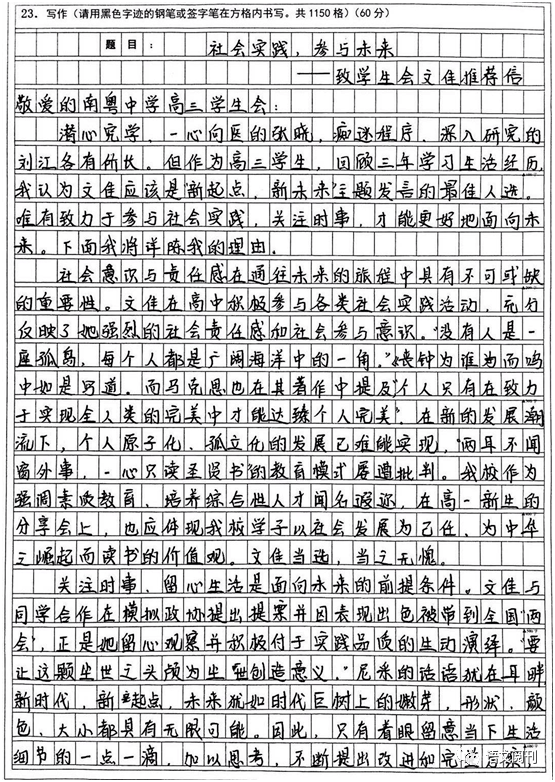 23. 写作（请用黑色字迹的钢笔或签字笔在方格内书写。共1150格）(60分)
题目：社会实践，参与未来
——致学生会文佳推荐信
敬爱的南粤中学高三学生会：
潜心究学、一心向医的张晓，痴迷程序、深入研究的
刘江各有所长。但作为高三学生，回顾三年学习生活经历，
我认为文佳应该是"新起点，新未来"主题发言的最佳人选。
唯有致力于参与社会实践，关注时事，才能更好地面向未
来。下面我将详陈我的理由。
社会意识与责任感在通往未来的旅程中具有不可或缺
的重要性。文佳在高中积极参与各类社会实践活动，充分
反映了她强烈的社会责任感和社会参与意识。"没有人是一
座孤岛，每个人都是广阔海洋中的一角。"《丧钟为谁而鸣》
中如是写道。而马克思也在其著作中提及"个人只有在致力
于实现全人类的完美中才能达臻个人完美"。在新的发展潮
流下，个人原子化、孤立化的发展已难能实现，"两耳不闻
窗外事，一心只读圣贤书"的教育模式屡遭批判。我校作为
强调素质教育、培养综合性人才闻名遐迩，在高一新生的
分享会上，也应体现我校学子以社会发展为己任、为中华
之崛起而读书的价值观。文佳当选，当之无愧。
关注时事、留心生活是面向未来的前提条件。文佳与
同学合作在模拟政协提出提案并因表现出色被带到全国"两
会"，正是她留心观察并积极付于实践品质的生动演绎。"要
让这颗尘世之头颅为尘世创造意义。"尼采的话语犹在耳畔
新时代，新起点，未来犹如时代巨树上的嫩芽，形状、颜
色、大小都具有无限可能。因此，只有着眼留意当下生活
细节的一点一滴，加以思考，不断提出改进和完